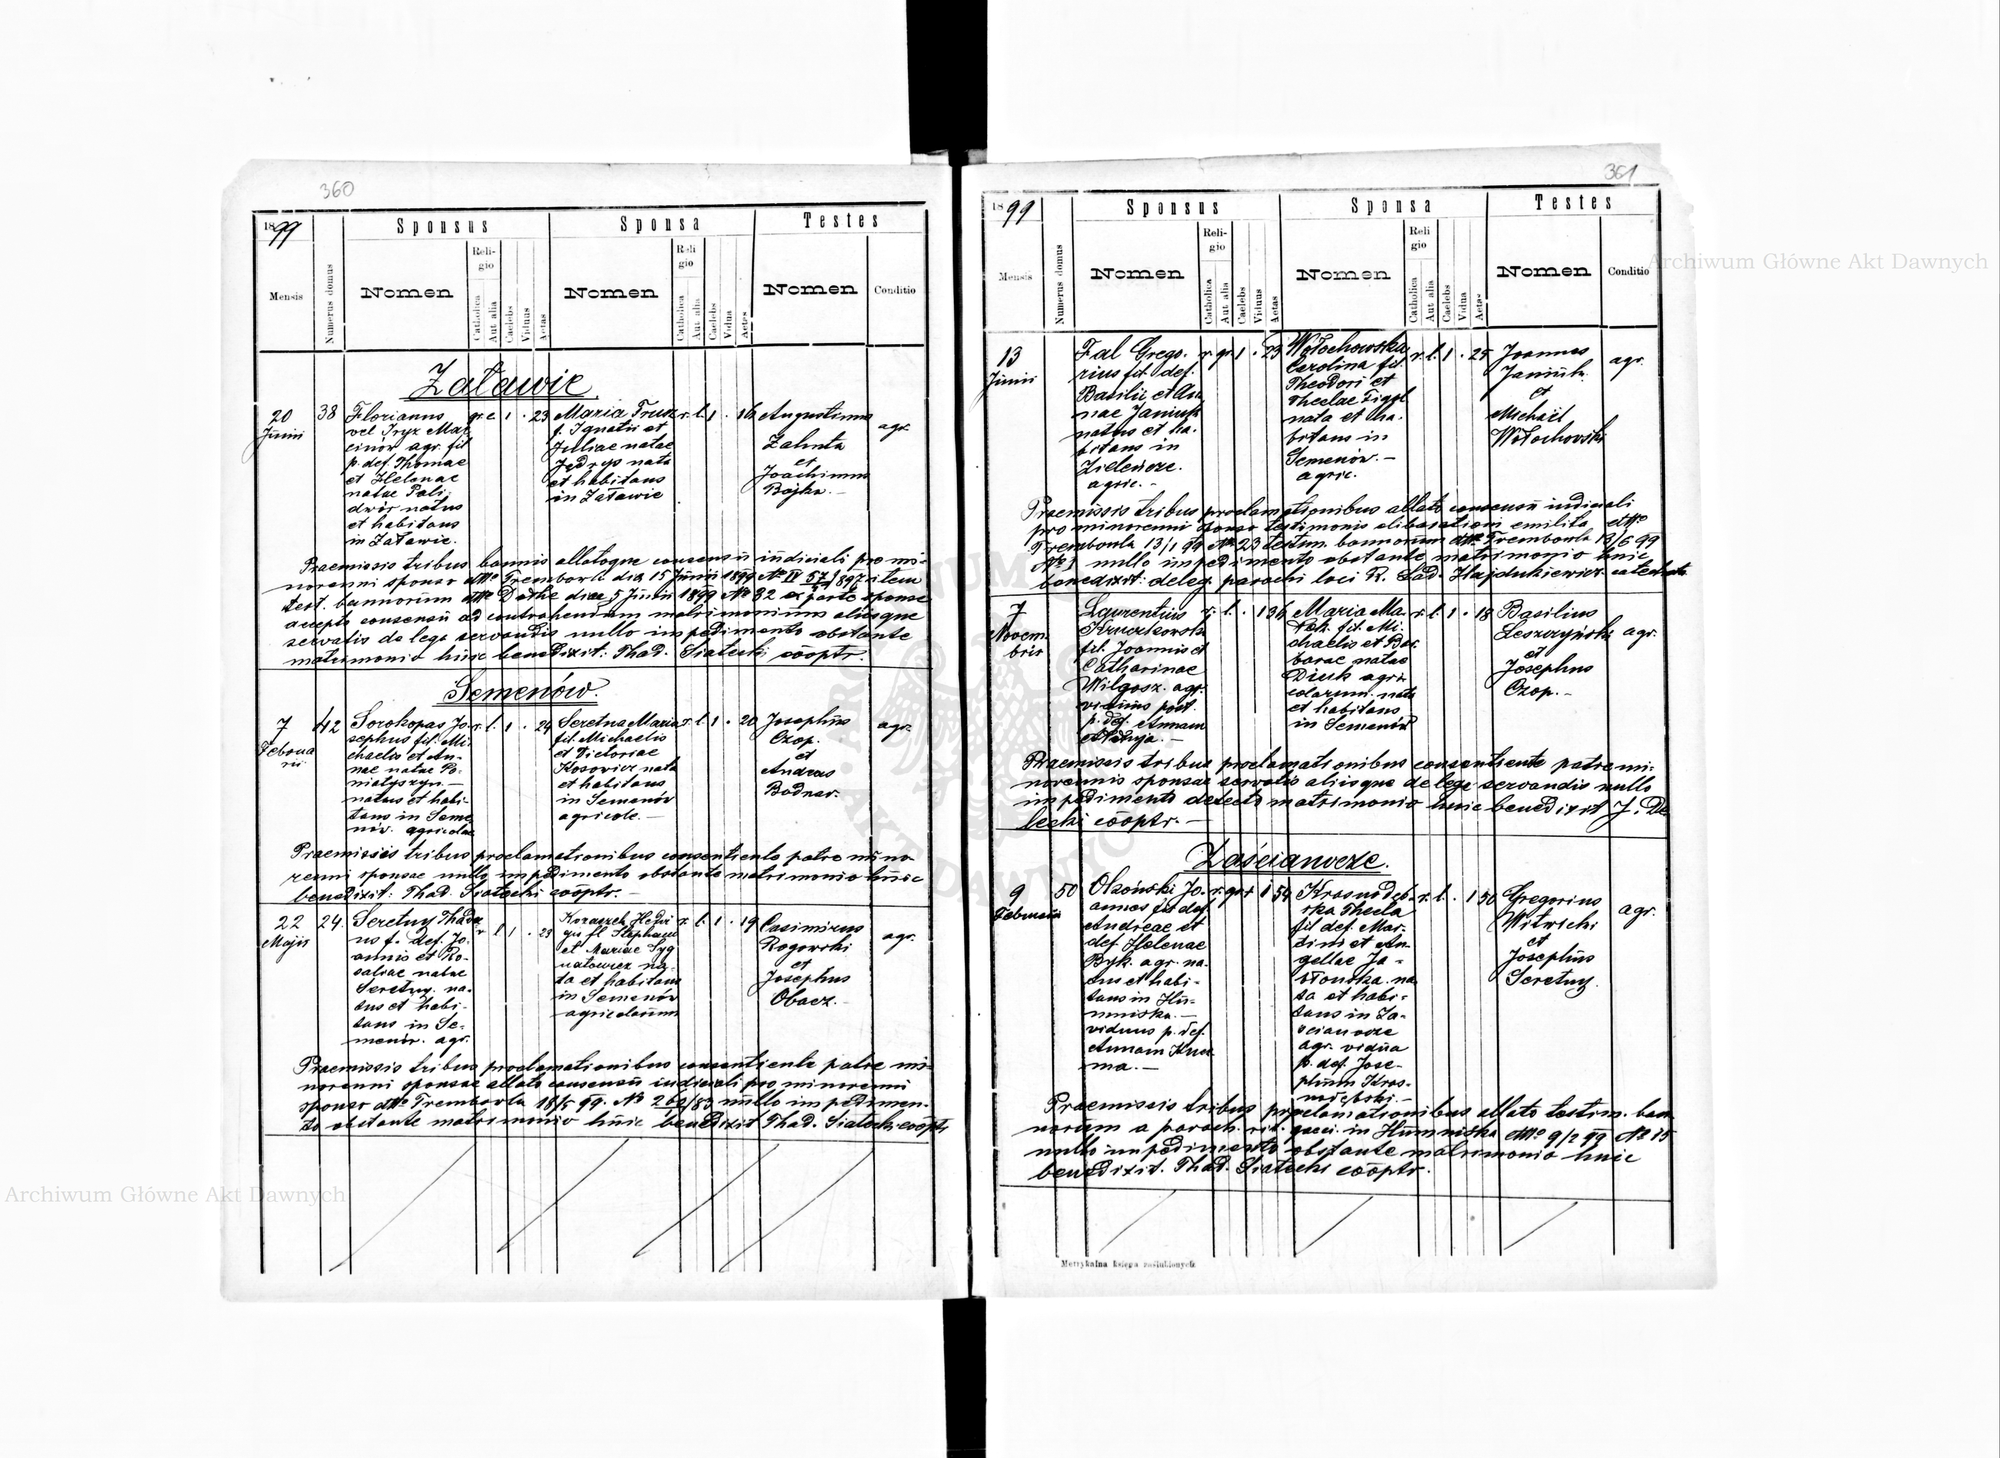 360
1899
Sponsus
Sponsa
Testes
Mensis
Numerus domus
Nomen
Religio
Catholica
Aut alia
Caelebs
Viduus
Aetas
Nomen
Religio
Catholica
Aut alia
Caelebs
Vidua
Aetas
Nomen
Conditio
Załawie
20
Junii
38
Florianus
vel Fryz Mar
cinów agr. fil
p. def. Thomae
et Helenae
natae Pali
dwór natus
et habitans
in Załawie.
gr. c 1 . 23
Maria Trusz
f. Ignatii et
Juliae natae
Jędrys nata
et habitans
in Załawie
r. l. 1 . 16
Augustinus
Zahuta
et
Joachimus
Bojko. —
agr.
Praemissis tribus bannis allatoque consensu iudiciali pro mi-
norenni sponso dtto Trembowla die 15 Junii 1899 No IV 57/897 item
test. bannorum dtto Darke diae 5 Junii 1899 No 82 ex parte sponsae
accepto consensu ad contrahendum matrimonium aliisque
servatis de lege servandis nullo impedimento obstante
matrimonio huic benedixit: Thad. Siatecki cooptr.
Semenów.
7
Februa
rii
42
Sorokopas Jo-
sephus fil. Mi-
chaelis et An-
nae natae Po-
niatyszyn —
natus et habi-
tans in Seme
nów. agricolae
r. l. 1 . 24
Seretna Maria
fil Michaelis
et Victoriae
Kosowicz nata
et habitans
in Semenów
agricole. —
r. l. 1 . 20
Josephus
Czop.
et
Andreas
Bodnar.
agr.
Praemissis tribus proclamationibus consentiente patre mino
renni sponsae nullo impedimento obstante matrimonio huic
benedixit: Thad. Siatecki cooptr. —
22
Majis
24.
Seretny Thade
us f. def. Jo-
annis et Ro-
saliae natae
Seretny. na-
tus et habi-
tans in Se-
menów. agr.
r. l. 1 . 23
Koraszek Hedvi
gis fl Stephani
et Mariae Syg
natowicz na-
ta et habitans
in Semenów
agricolarum
r. l. 1 . 19
Casimirus
Rogowski
et
Josephus
Obacz. —
agr.
Praemissis tribus proclamationibus consentiente patre mi-
norenni sponsae allato consensu iudiciali pro minorenni
sponso dtto Trembowla 18/5 99. No 260/83 nullo impedimen-
to obstante matrimonio huic benedixit Thad. Siatecki cooptr
361
1899
Sponsus
Sponsa
Testes
Mensis
Numerus domus
Nomen
Religio
Catholica
Aut alia
Caelebs
Viduus
Aetas
Nomen
Religio
Catholica
Aut alia
Caelebs
Vidua
Aetas
Nomen
Conditio
13
Junii
Fal Grego-
rius fil. def.
Basilii et An
nae Janiuk
natus et ha-
bitans in
Zielencze.
agric. -
r. gr. 1 . 23
Wołochowska
Carolina fil.
Theodori et
Theclae Figol
nata et ha-
bitans in
Semenów. —
agric.
r. l. 1 . 25
Joannes
Janiuk.
et
Michaël
Wołochowski
agr.
Praemissis tribus proclamationibus allato consensu iudiciali
pro minorenni sponso testimonio emilita dtto
Trembowla 13/1 99 No 23 testim. bannorum dtto Trembowla 13/6 99
No 3 nullo impedimento obstante matrimonio huic
benedixit: deleg. parochi loci R. Lad. Hajdukiewicz catecheta
7
Novem
bris
Laurentius
Kruczkowski
fil. Joannis et
Catharinae
Wilgosz. agr.
viduus post
p. def. Annam
r. l. . 1 36
Maria Ma-
fil. Mi-
chaelis et Bar
barae natae
Dziuk agri-
colarum. nata
et habitans
in Semenów
r. l. 1 . 18
Basilius
Leszczyński
et
Josephus
Czop. —
agr.
Praemissis tribus proclamationibus consentiente patre mi-
norennis sponsae servatis aliisque de lege servandis nullo
impedimento detecto matrimonio huic benedixit J. De
lecki cooptr. —
Zaścianocze.
9
Februarii
50
Olzoński Jo-
annes fil def.
Andreae et
def. Helenae
Byk. agr. na-
tus et habi-
tans in Hu-
mniska. —
viduus p. def.
Annam Kuz
ma. —
r. gr. . 1 54
Krasnodęb-
ska Thecla
fil def. Mar-
tini et An-
gellae Ja-
słowska. na
ta et habi-
tans in Za-
ścianocze
agr. vidua
p. def. Jose-
phum Kras-
nodębski. —
r. l. . 1 50
Gregorius
Witwicki
et
Josephus
Seretny.
agr.
Praemissis tribus proclamationibus allato testim. ban
norum a paroch. rit. graeci. in Humniska dtto 9/2 99 No 15
nullo impedimento obstante matrimonio huic
benedixit. Thad. Siatecki cooptr.
Metrykalna księga zaślubionych
Archiwum Główne Akt Dawnych
Archiwum Główne Akt Dawnych